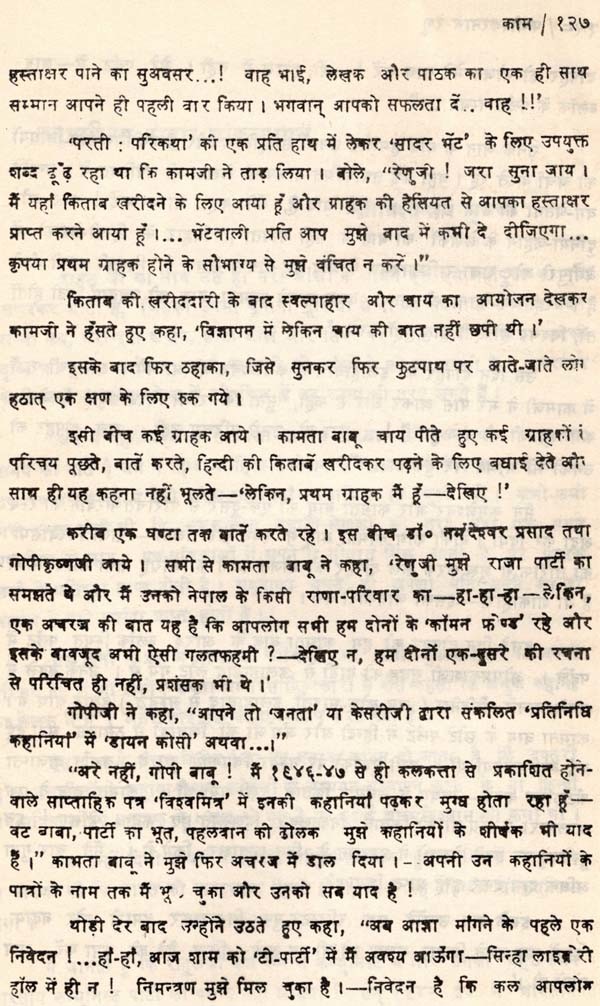 काम / १२७
हस्ताक्षर पाने का सुअवसर...! वाह भाई, लेखक और पाठक का एक ही साथ
सम्मान आपने ही पहली बार किया। भगवान् आपको सफलता दें.. वाह !!'
'परती : परिकथा' की एक प्रति हाथ में लेकर 'सादर भेंट' के लिए उपयुक्त
शब्द ढूँढ़ रहा था कि कामजी ने ताड़ लिया। बोले, "रेणुजी ! जरा सुना जाय।
मैं यहाँ किताब खरीदने के लिए आया हूँ और ग्राहक की हैसियत से आपका हस्ताक्षर
प्राप्त करने आया हूँ।... भेंटवाली प्रति आप मुझे बाद में कभी दे दीजिएगा...
कृपया प्रथम ग्राहक होने के सौभाग्य से मुझे वंचित न करें।"
किताब की खरीददारी के बाद स्वल्पाहार और चाय का आयोजन देखकर
कामजी ने हँसते हुए कहा, 'विज्ञापन में लेकिन चाय की बात नहीं छपी थी।'
इसके बाद फिर ठहाका, जिसे सुनकर फिर फुटपाथ पर आते-जाते लोग
हठात् एक क्षण के लिए रुक गये।
इसी बीच कई ग्राहक आये। कामता बाबू चाय पीते हुए कई ग्राहकों
परिचय पूछते, बातें करते, हिन्दी की किताबें खरीदकर पढ़ने के लिए बधाई देते और
साथ ही यह कहना नहीं भूलते—'लेकिन, प्रथम ग्राहक मैं हूँ—देखिए !'
करीब एक घण्टा तक बातें करते रहे। इस बीच डॉ० नर्मदेश्वर प्रसाद तथा
गोपीकृष्णजी आये। सभी से कामता बाबू ने कहा, 'रेणुजी मुझे राजा पार्टी का
समझते थे और मैं उनको नेपाल के किसी राणा-परिवार का—हा-हा-हा—लेकिन,
एक अचरज की बात यह है कि आपलोग सभी हम दोनों के 'कॉमन फ्रेण्ड' रहे और
इसके बावजूद अभी ऐसी गलतफहमी ?—देखिए न, हम दोनों एक-दूसरे की रचना
से परिचित ही नहीं, प्रशंसक भी थे।'
गोपीजी ने कहा, "आपने तो 'जनता' या केसरीजी द्वारा संकलित 'प्रतिनिधि
कहानियां' में 'डायन कोसी' अथवा...।"
"अरे नहीं, गोपी बाबू ! मैं १९४६-४७ से ही कलकत्ता से प्रकाशित होने-
वाले साप्ताहिक पत्र 'विश्वमित्र' में इनकी कहानियाँ पढ़कर मुग्ध होता रहा हूँ—
वट बाबा, पार्टी का भूत, पहलवान की ढोलक मुझे कहानियों के शीर्षक भी याद
हैं।" कामता बाबू ने मुझे फिर अचरज में डाल दिया।- अपनी उन कहानियों के
पात्रों के नाम तक मैं भू चुका और उनको सब याद है !
थोड़ी देर बाद उन्होंने उठते हुए कहा, "अब आज्ञा मांगने के पहले एक
निवेदन !...हाँ-हाँ, आज शाम को 'टी-पार्टी' में मैं अवश्य आऊँगा—सिन्हा लाइब्रेरी
हॉल में ही न ! निमन्त्रण मुझे मिल चुका है।—निवेदन है कि कल आपलोग